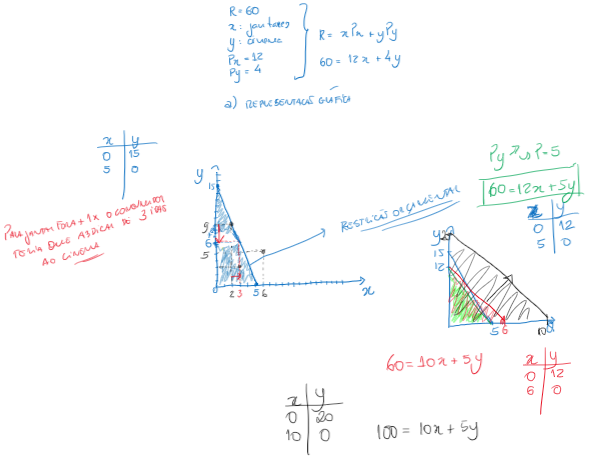 R = 60
x: jantares
y: cinema
Px = 12
Py = 4
R = xPx + yPy
60 = 12x + 4y
a) REPRESENTAÇÃO GRÁFICA
x y
0 15
5 0
PARA JANTAR FORA + 1x O CONSUMIDOR
TERIA QUE ABDICAR DE 3 IDAS
AO CINEMA
y
15
9
6
5
0
2 3 5 6
x
RESTRIÇÃO ORÇAMENTAL
Py ↗ P=5
60 = 12x + 5y
x y
0 12
5 0
y
20
15
12
5 6 10
60 = 10x + 5y
x y
0 12
6 0
x y
0 20
10 0
100 = 10x + 5y